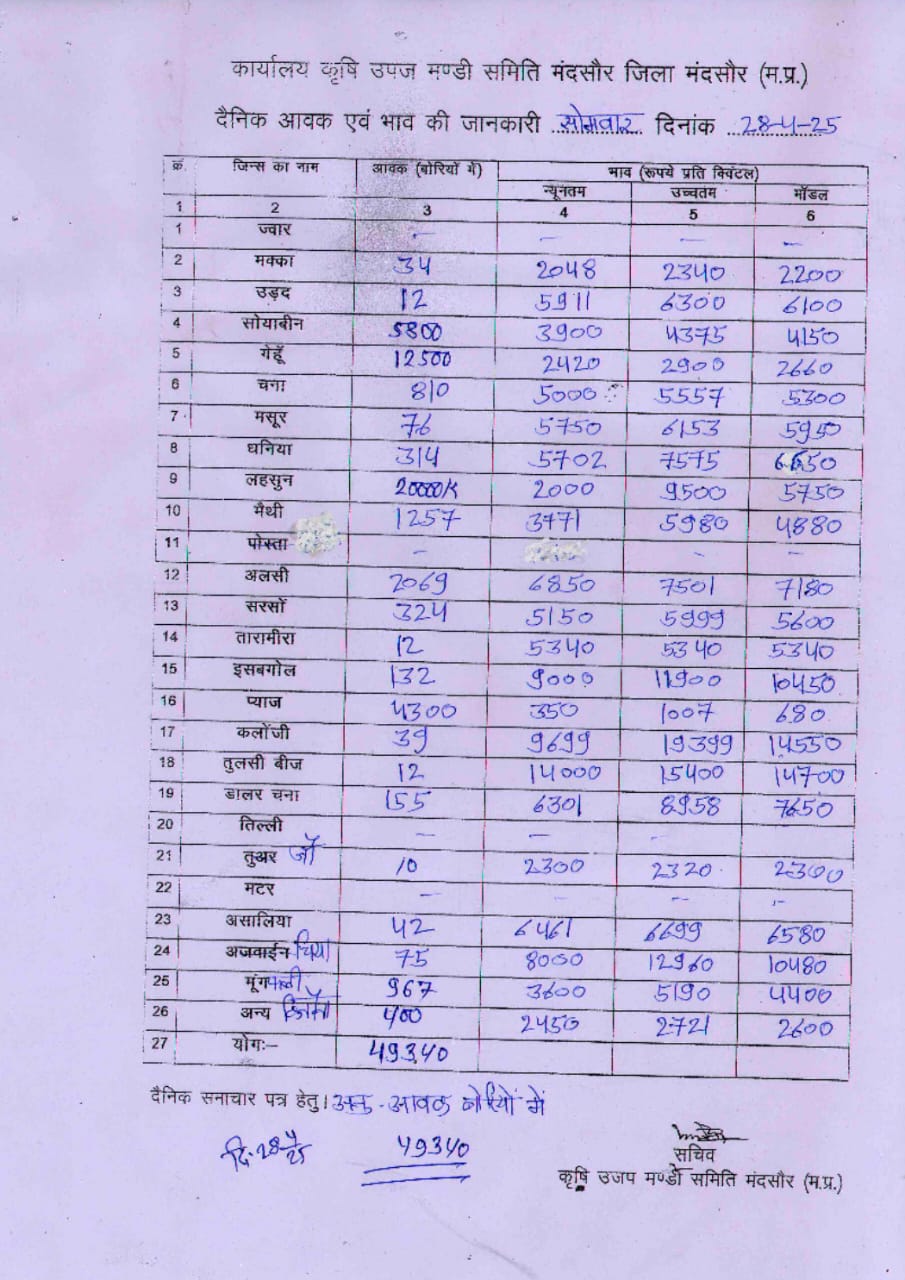 कार्यालय कृषि उपज मण्डी समिति मंदसौर जिला मंदसौर (म.प्र.)
दैनिक आवक एवं भाव की जानकारी सोमवार दिनांक 28-4-25
क्र. जिन्स का नाम आवक (बोरियों में) भाव (रूपये प्रति क्विंटल)
न्यूनतम उच्चतम मॉडल
1 2 3 4 5 6
1 ज्वार – – – –
2 मक्का 34 2048 2340 2200
3 उड़द 12 5911 6300 6100
4 सोयाबीन 5800 3900 4375 4150
5 गेहूँ 12500 2420 2900 2660
6 चना 810 5000 5557 5300
7 मसूर 76 5750 6153 5950
8 धनिया 314 5702 7575 6650
9 लहसुन 20000/K 2000 9500 5750
10 मैथी 1257 3771 5980 4880
11 पोस्ता – – –
12 अलसी 2069 6850 7501 7180
13 सरसों 324 5150 5999 5600
14 तारामीरा 12 5340 5340 5340
15 इसबगोल 132 9000 11900 10450
16 प्याज 4300 350 1007 680
17 कलोंजी 39 9699 19399 14550
18 तुलसी बीज 12 14000 15400 14700
19 डालर चना 155 6301 8958 7650
20 तिल्ली – – –
21 तुअर जौ 10 2300 2320 2300
22 मटर – – – –
23 असालिया 42 6461 6699 6580
24 अजवाईन चिया 75 8000 12960 10480
25 मूंगफली 967 3600 5190 4400
26 अन्य 400 2450 2721 2600
27 योगः– 49340
दैनिक समाचार पत्र हेतु। आवक बोरियों में
दि. 28-4/25 49340
सचिव
कृषि उजप मण्डी समिति मंदसौर (म.प्र.)